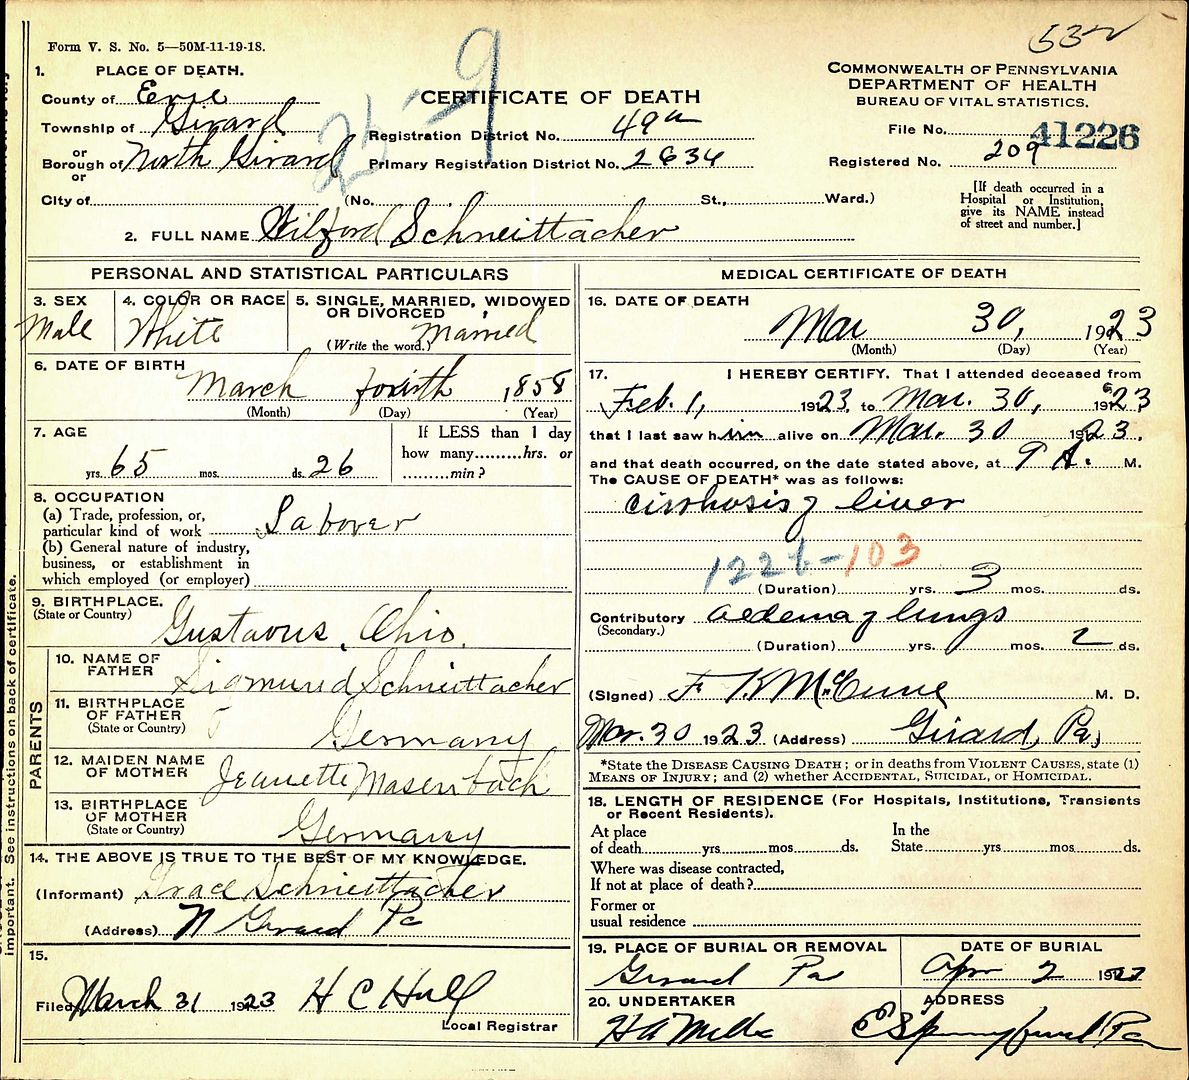 532
Form V. S. No. 5—50M-11-19-18.
1. PLACE OF DEATH.
County of Erie
Township of Girard
or
Borough of North Girard
or
City of
25-9
CERTIFICATE OF DEATH
Registration District No. 49a
Primary Registration District No. 2634
(No. St., Ward.)
COMMONWEALTH OF PENNSYLVANIA
DEPARTMENT OF HEALTH
BUREAU OF VITAL STATISTICS.
File No. 41226
Registered No. 209
[If death occurred in a
Hospital or Institution,
give its NAME instead
of street and number.]
2. FULL NAME Wilford Schneittacher
PERSONAL AND STATISTICAL PARTICULARS
3. SEX
Male
4. COLOR OR RACE
White
5. SINGLE, MARRIED, WIDOWED
OR DIVORCED
(Write the word.) Married
6. DATE OF BIRTH
March fourth 1858
(Month) (Day) (Year)
7. AGE
yrs. 65 mos. ds. 26
If LESS than 1 day
how many.........hrs. or
.........min?
8. OCCUPATION
(a) Trade, profession, or,
particular kind of work Laborer
(b) General nature of industry,
business, or establishment in
which employed (or employer)
9. BIRTHPLACE.
(State or Country) Gustavus, Ohio.
PARENTS
10. NAME OF
FATHER Sigmund Schneittacher
11. BIRTHPLACE
OF FATHER
(State or Country) Germany
12. MAIDEN NAME
OF MOTHER Jeanette Masenbach
13. BIRTHPLACE
OF MOTHER
(State or Country) Germany
14. THE ABOVE IS TRUE TO THE BEST OF MY KNOWLEDGE.
(Informant) Grace Schneittacher
(Address) N Girard Pa
15.
Filed March 31 1923 H C Hull
Local Registrar
MEDICAL CERTIFICATE OF DEATH
16. DATE OF DEATH
Mar 30, 1923
(Month) (Day) (Year)
17. I HEREBY CERTIFY. That I attended deceased from
Feb. 1, 1923, to Mar. 30, 1923
that I last saw him alive on Mar. 30 1923.
and that death occurred, on the date stated above, at 9 A. M.
The CAUSE OF DEATH* was as follows:
cirrhosis of liver
122b-103
(Duration) yrs. 3 mos. ds.
Contributory oedema of lungs
(Secondary.)
(Duration) yrs. mos. 2 ds.
(Signed) F K McCune M. D.
Mar. 30 1923 (Address) Girard, Pa,
*State the DISEASE CAUSING DEATH; or in deaths from VIOLENT CAUSES, state (1)
MEANS OF INJURY; and (2) whether ACCIDENTAL, SUICIDAL, or HOMICIDAL.
18. LENGTH OF RESIDENCE (For Hospitals, Institutions, Transients
or Recent Residents).
At place
of death yrs. mos. ds.
In the
State yrs. mos. ds.
Where was disease contracted,
If not at place of death?
Former or
usual residence
19. PLACE OF BURIAL OR REMOVAL
Girard Pa
DATE OF BURIAL
Apr 2 19
20. UNDERTAKER
H A
ADDRESS
E Springfield Pa
important. See instructions on back of certificate.